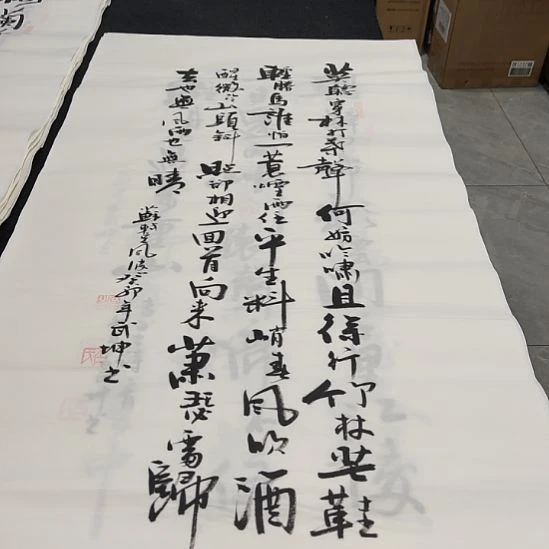 莫聽穿林打葉聲何妨吟嘯且徐行竹杖芒鞋
輕勝馬誰怕一蓑煙雨任平生料峭春風吹酒
醒微冷山頭斜照却相迎回首向来蕭瑟處歸
去也無風雨也無晴
蘇軾定風波癸卯年武坤书